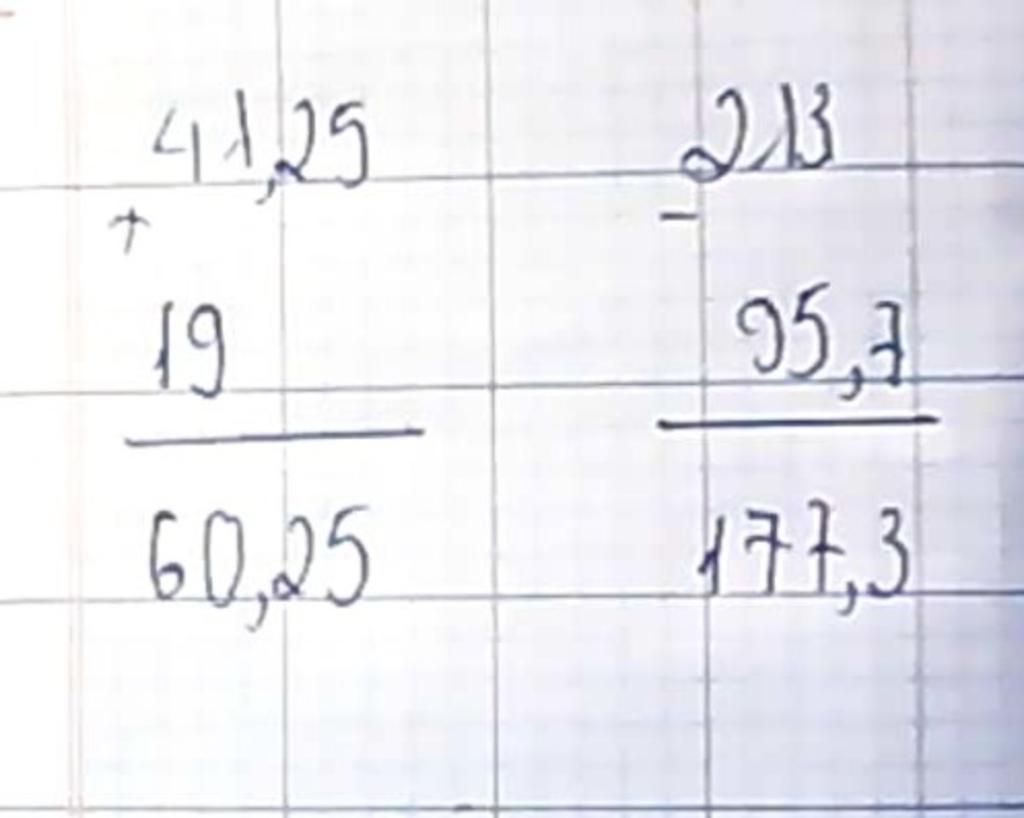 41,25 213
+ -
19 95,7
60,25 177,3